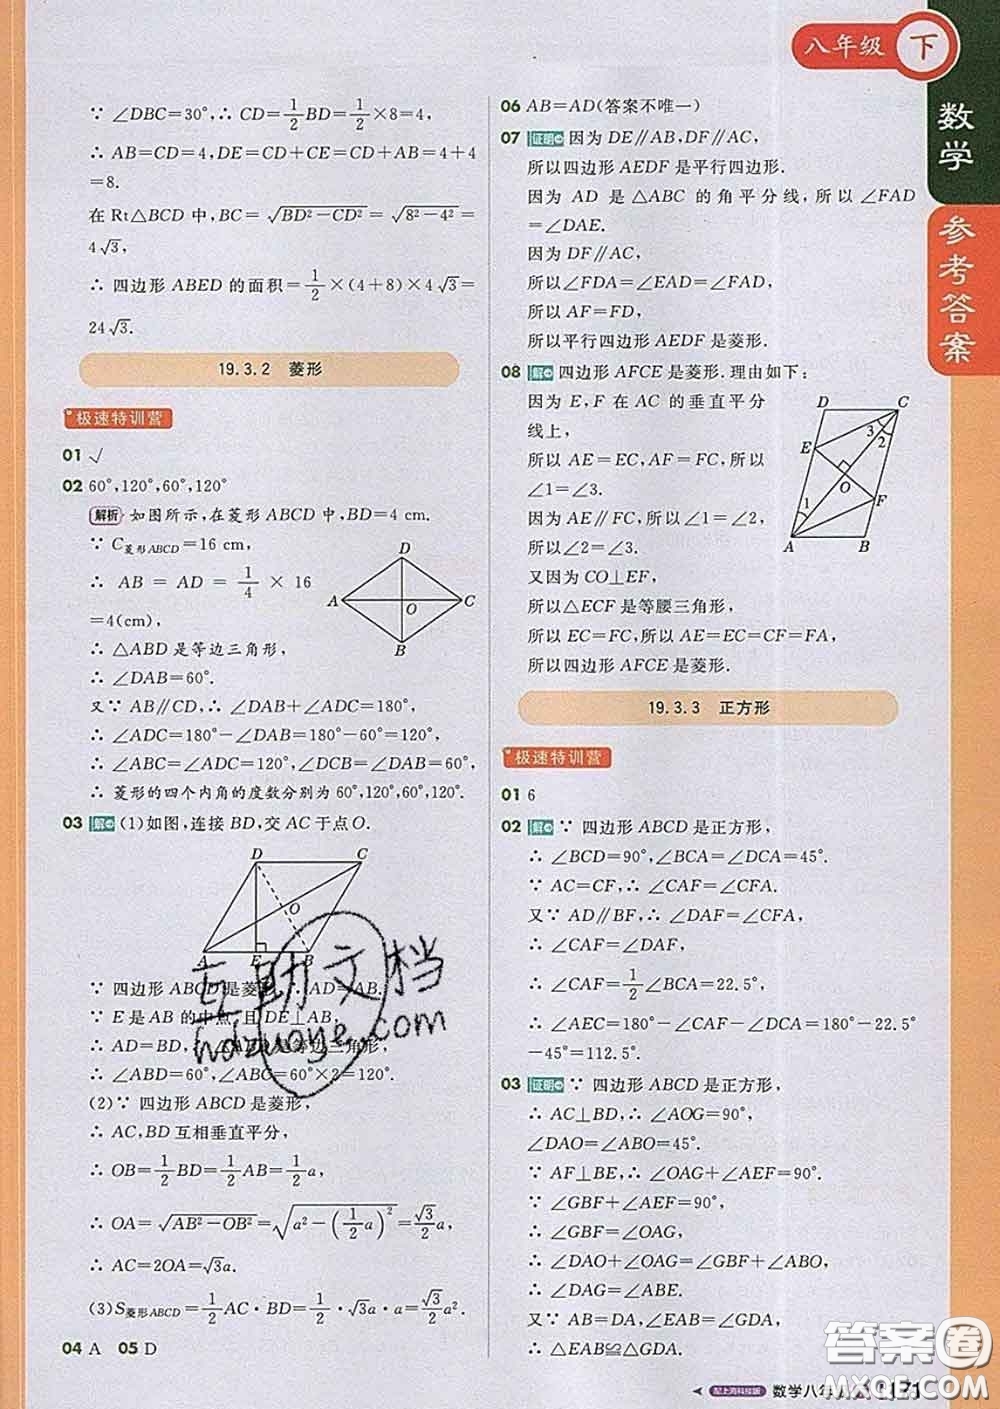 八年级 下
数学
参考答案
∵ ∠DBC=30°,∴ CD=1/2BD=1/2×8=4,
∴ AB=CD=4,DE=CD+CE=CD+AB=4+4
=8.
在 Rt△BCD 中,BC=√(BD²-CD²)=√(8²-4²)=
4√3,
∴ 四边形 ABED 的面积=1/2×(4+8)×4√3=
24√3.
19.3.2 菱形
极速特训营
01 √
02 60°,120°,60°,120°
解析 如图所示,在菱形 ABCD 中,BD=4 cm.
∵ C菱形ABCD=16 cm,
∴ AB = AD = 1/4 × 16
=4(cm),
∴ △ABD 是等边三角形,
∴ ∠DAB=60°.
D
A
O
C
B
又∵ AB∥CD,∴ ∠DAB+∠ADC=180°,
∴ ∠ADC=180°-∠DAB=180°-60°=120°,
∴ ∠ABC=∠ADC=120°,∠DCB=∠DAB=60°,
∴ 菱形的四个内角的度数分别为 60°,120°,60°,120°.
03 解 (1)如图,连接 BD,交 AC 于点 O.
D
C
O
A
E
B
∵ 四边形 ABCD 是菱形,∴ AD=AB.
∵ E 是 AB 的中点,且 DE⊥AB,
∴ AD=BD,∴ △ABD 是等边三角形,
∴ ∠ABD=60°,∠ABC=60°×2=120°.
(2)∵ 四边形 ABCD 是菱形,
∴ AC,BD 互相垂直平分,
∴ OB=1/2BD=1/2AB=1/2a,
∴ OA=√(AB²-OB²)=√(a²-(1/2a)²)=√3/2a,
∴ AC=2OA=√3a.
(3)S菱形ABCD=1/2AC·BD=1/2·√3a·a=√3/2a².
04 A 05 D
06 AB=AD(答案不唯一)
07 证明 因为 DE∥AB,DF∥AC,
所以四边形 AEDF 是平行四边形.
因为 AD 是 △ABC 的角平分线,所以 ∠FAD
=∠DAE.
因为 DF∥AC,
所以∠FDA=∠EAD=∠FAD,
所以 AF=FD,
所以平行四边形 AEDF 是菱形.
08 解 四边形 AFCE 是菱形.理由如下:
因为 E,F 在 AC 的垂直平分
线上,
所以 AE=EC,AF=FC,所以
∠1=∠3.
因为 AE=AF,所以∠1=∠2,
所以∠2=∠3.
又因为 CO⊥EF,
所以△ECF 是等腰三角形,
所以 EC=FC,所以 AE=EC=CF=FA,
所以四边形 AFCE 是菱形.
D
C
3
2
E
O
F
1
A
B
19.3.3 正方形
极速特训营
01 6
02 解 ∵ 四边形 ABCD 是正方形,
∴ ∠BCD=90°,∠BCA=∠DCA=45°.
∵ AC=CF,∴ ∠CAF=∠CFA.
又∵ AD∥BF,∴ ∠DAF=∠CFA,
∴ ∠CAF=∠DAF,
∴ ∠CAF=1/2∠BCA=22.5°,
∴ ∠AEC=180°-∠CAF-∠DCA=180°-22.5°
-45°=112.5°.
03 证明 ∵ 四边形 ABCD 是正方形,
∴ AC⊥BD,∴ ∠AOG=90°,
∠DAO=∠ABO=45°.
∵ AF⊥BE,∴ ∠OAG+∠AEF=90°.
∵ ∠GBF+∠AEF=90°,
∴ ∠GBF=∠OAG,
∴ ∠DAO+∠OAG=∠GBF+∠ABO,
∴ ∠DAG=∠ABE.
又∵ AB=DA,∠EAB=∠GDA,
∴ △EAB≌△GDA.
配上海科技版 数学八年
互助文档
hdzuoye.com
答案圈
MXQE.COM